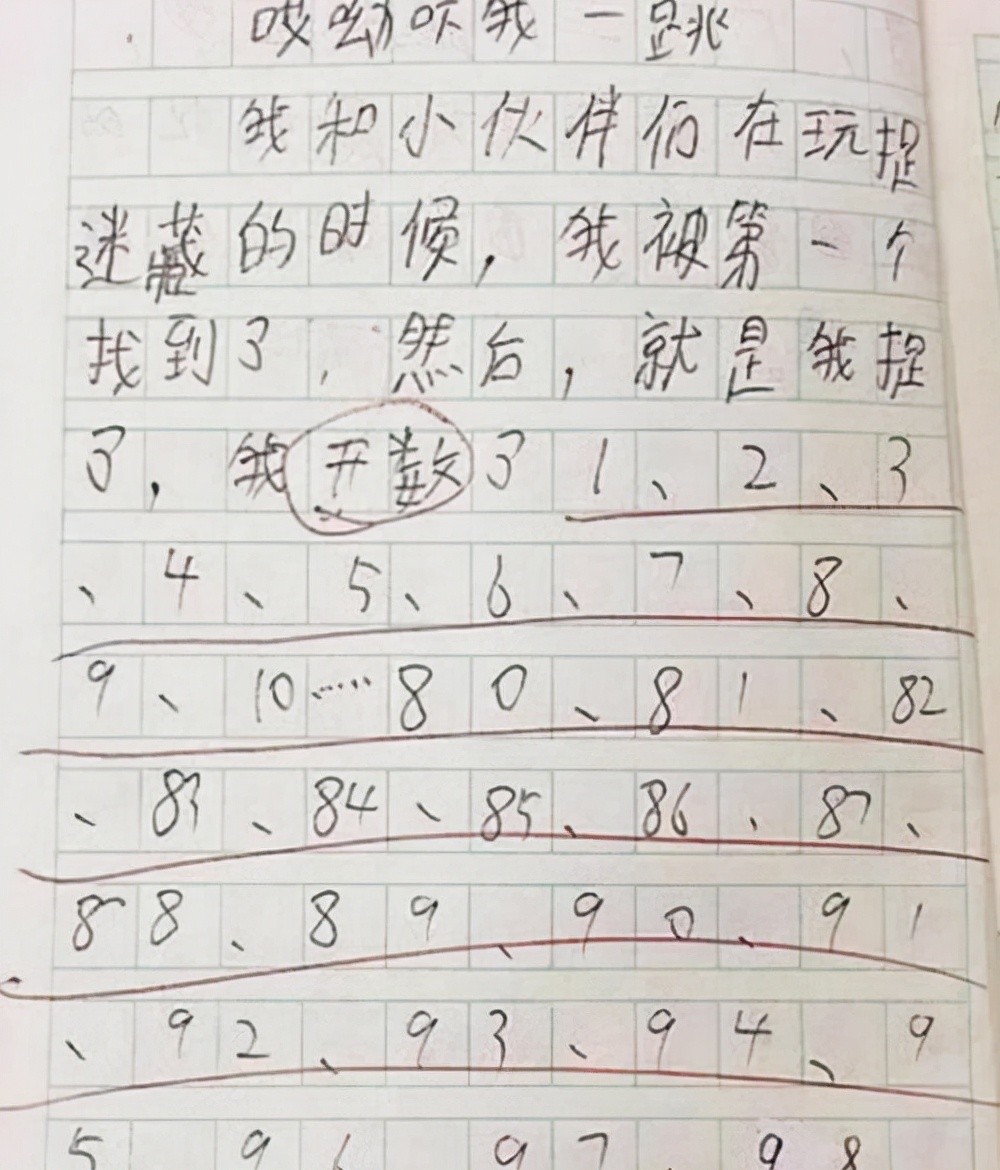 哎呦吓我一跳
我和小伙伴们在玩捉
迷藏的时候，我被第一个
找到了，然后，就是我捉
了，我开数了1、2、3
、4、5、6、7、8、
9、10……80、81、82
、83、84、85、86、87、
88、89、90、91
、92、93、94、9
5 96 97、98